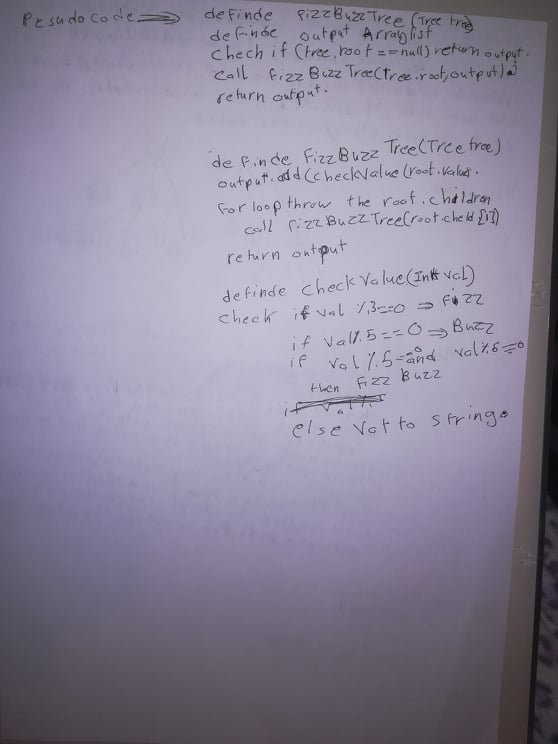 Pesudocode ⇒ definde FizzBuzzTree (Tree tree)
definde output Arraylist
chech if (tree.root == null) return output.
call FizzBuzzTree(tree.root, output)
return output.
definde FizzBuzz Tree(Tree tree)
output.add(checkValue(root.value.
for loop throw the root.children
call FizzBuzzTree(root.cheld [i])
return output
definde checkValue(Int val)
check if val %3==0 ⇒ Fizz
if val%5==0 ⇒ Buzz
if val%5==0 and val%5==0
then Fizz Buzz
else Val to string.